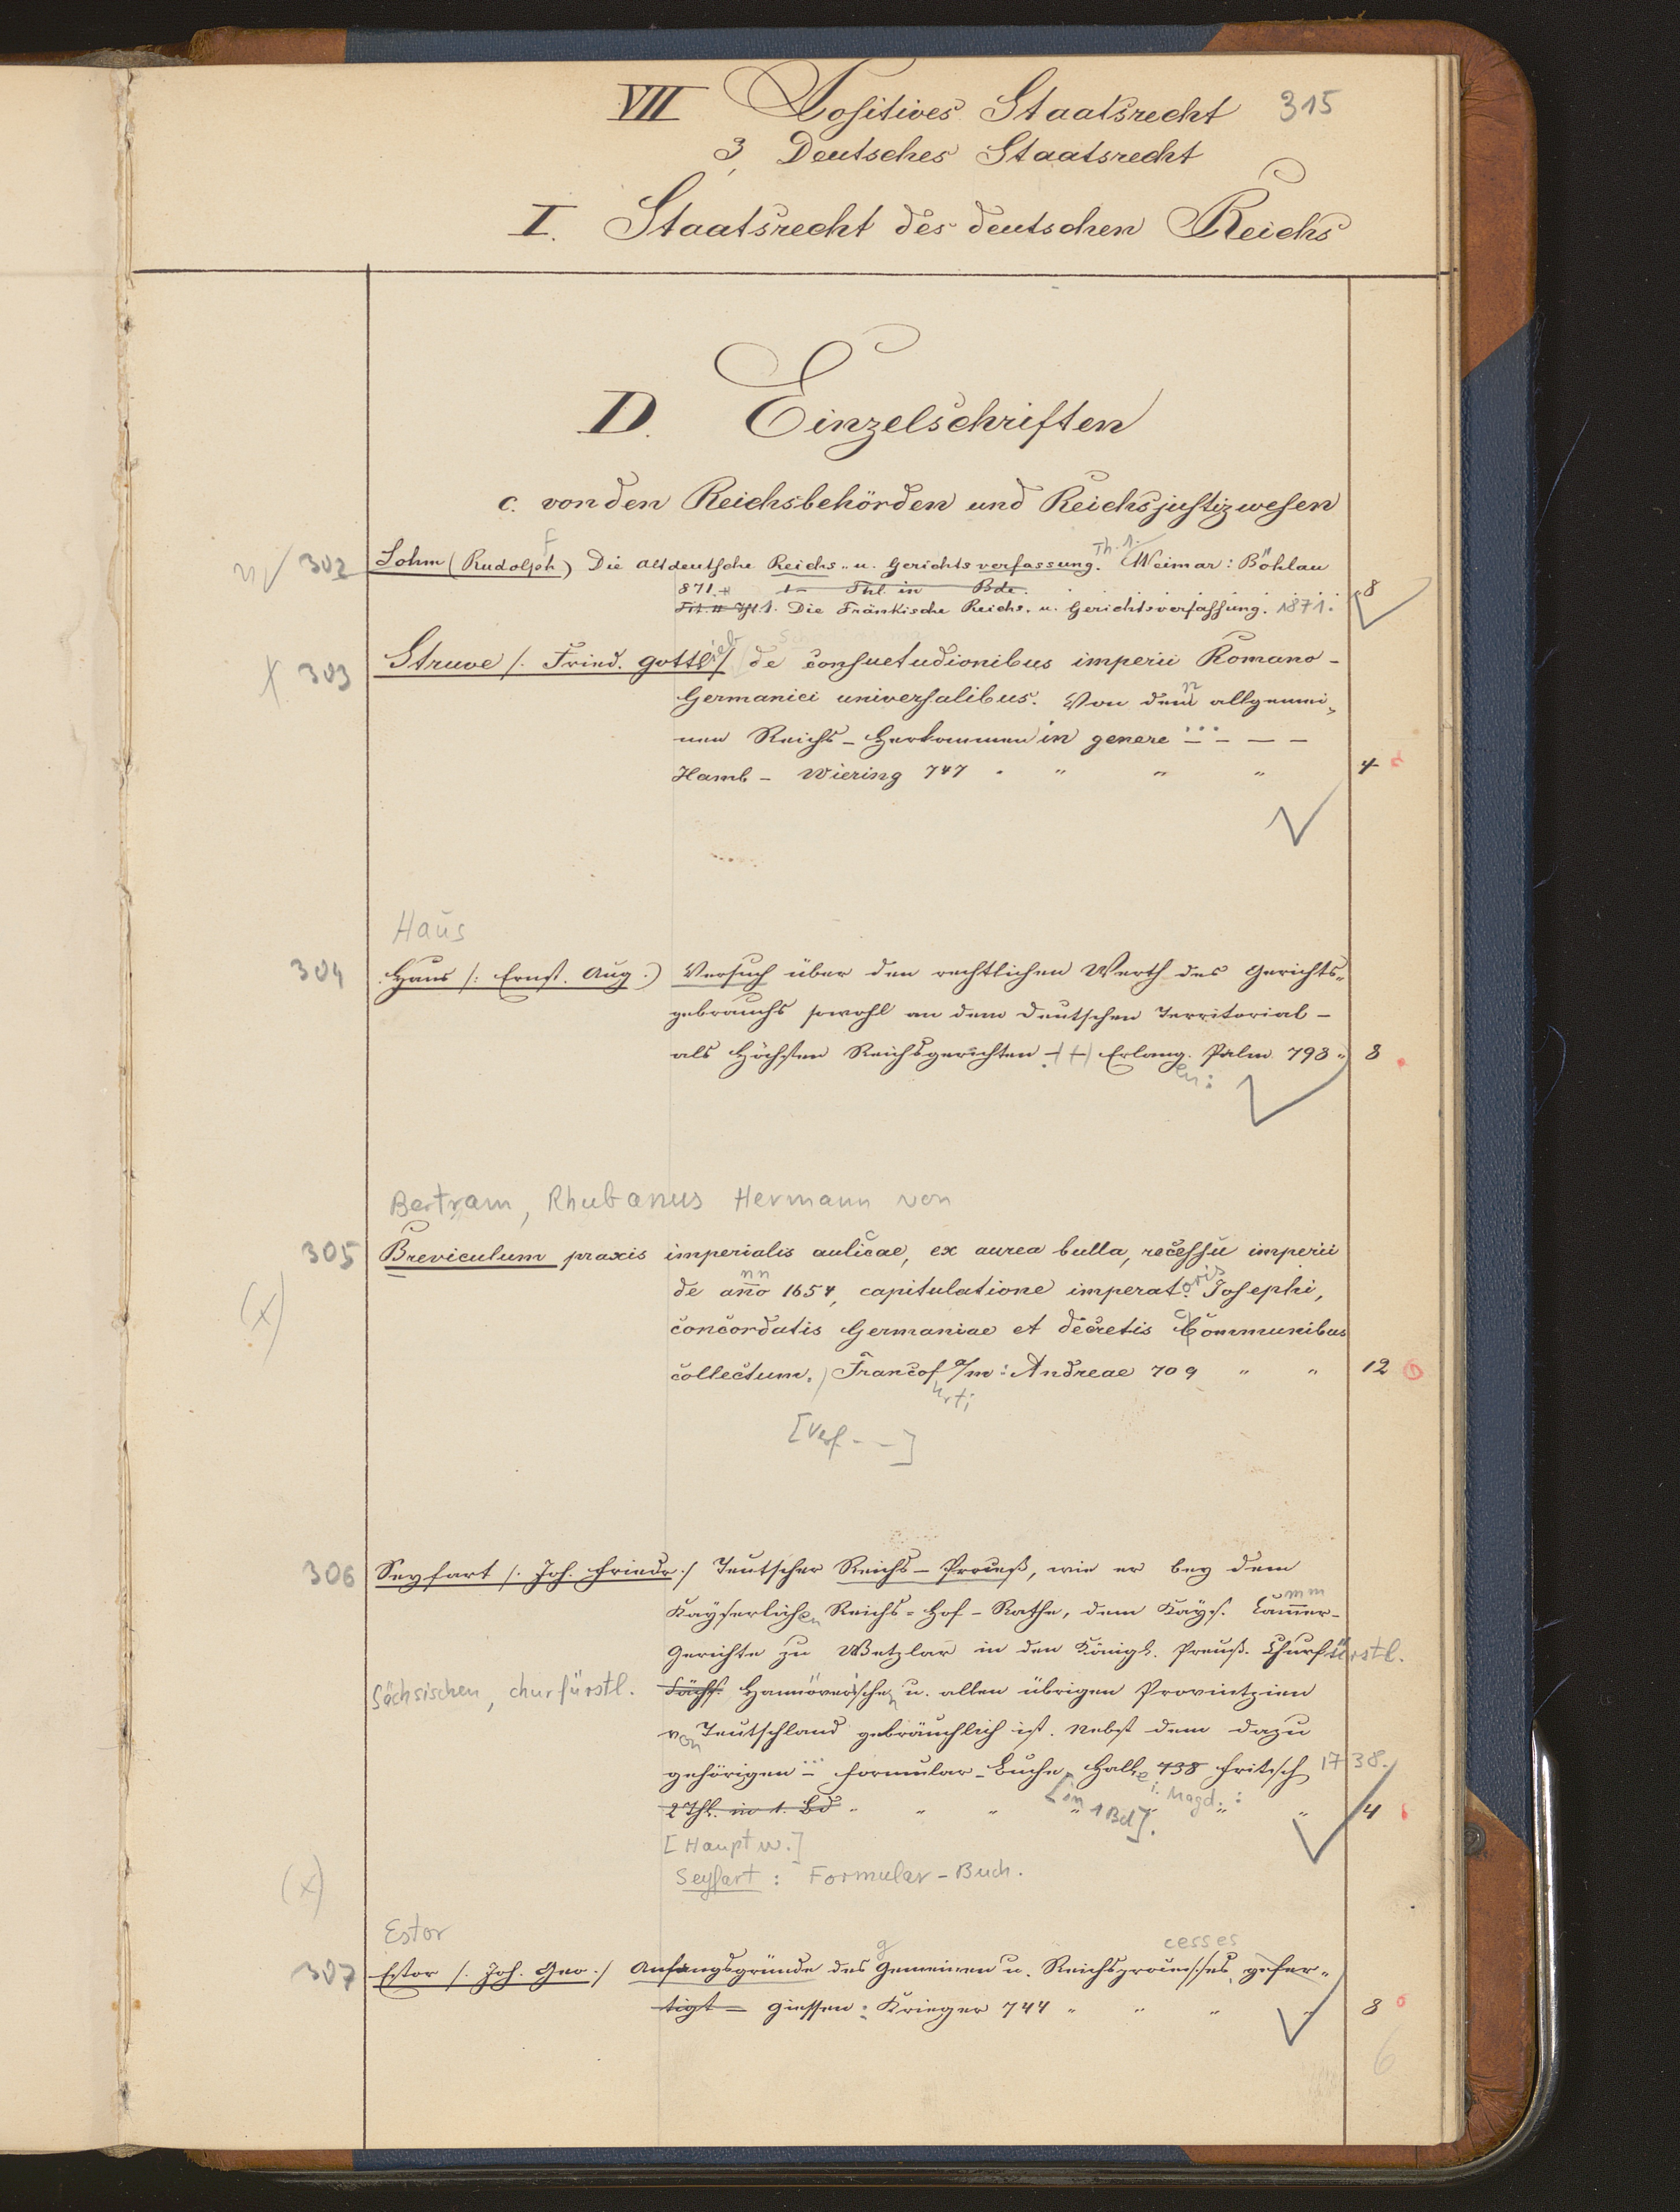 VII Positives Staatsrecht 315
3, Deutsches Staatsrecht
I. Staatsrecht des deutschen Reichs
D. Einzelschriften
c. von den Reichsbehörden und Reichsjustizwesen
302 Sohm (Rudolph) Die altdeutsche Reichs- u. Gerichtsverfassung. Th. 1. Weimar: Böhlau
871. 1 Thl. in Bde.
1. Die Fränkische Reichs- u. Gerichtsverfassung. 1871. 8
X 303 Struve /. Fried. Gottlieb / de consuetudionibus imperii Romano-
Germanici universalibus. Von den allgemei-
nen Reichs-Herkommen in genere ... – – –
Hamb - Wiering 747 . " " " 4
Haus
304 Haus /: Ernst. Aug.) Versuch über den rechtlichen Werth des Gerichts-
gebrauchs sowohl an dem deutschen Territorial-
als höchsten Reichsgerichten Erlang. Palm 793. 8
en:
Bertram, Rhubanus Hermann von
305 Breviculum praxis imperialis aulicae, ex aurea bulla, recessu imperii
(x) de anno 1654, capitulatione imperatoris Josephi,
concordatis Germaniae et decretis Communibus
collectum. Francof a/m: Andreae 709 " " 12
urti
[Verf - -]
306 Seyfart /. Joh. Friedr. / Teutscher Reichs-Proceß, wie er bey dem
Kayserlichen Reichs-Hof-Rathe, dem Kays. Cammer-
Gerichte zu Wetzlar in den Königl. Preuß. Churfürstl.
Sächsischen, churfürstl. Sächs. Hannöverschen u. allen übrigen Provintzien
von Teutschland gebräuchlich ist. Nebst dem dazu
gehörigen ... Formular-Buche. Halle 738 Fritsch 1738.
i. Magd.:
2 Thl. in 1. Bd " " [in 1 Bd]. " " 4
[Hauptw.]
Seyfart: Formular-Buch.
(x)
Estor
307 Estor /. Joh. Geo. / Anfangsgründe des Gemeinen u. Reichsprocesses, gefer-
tigt – Giessen: Krieger 744 " " " " 8
6